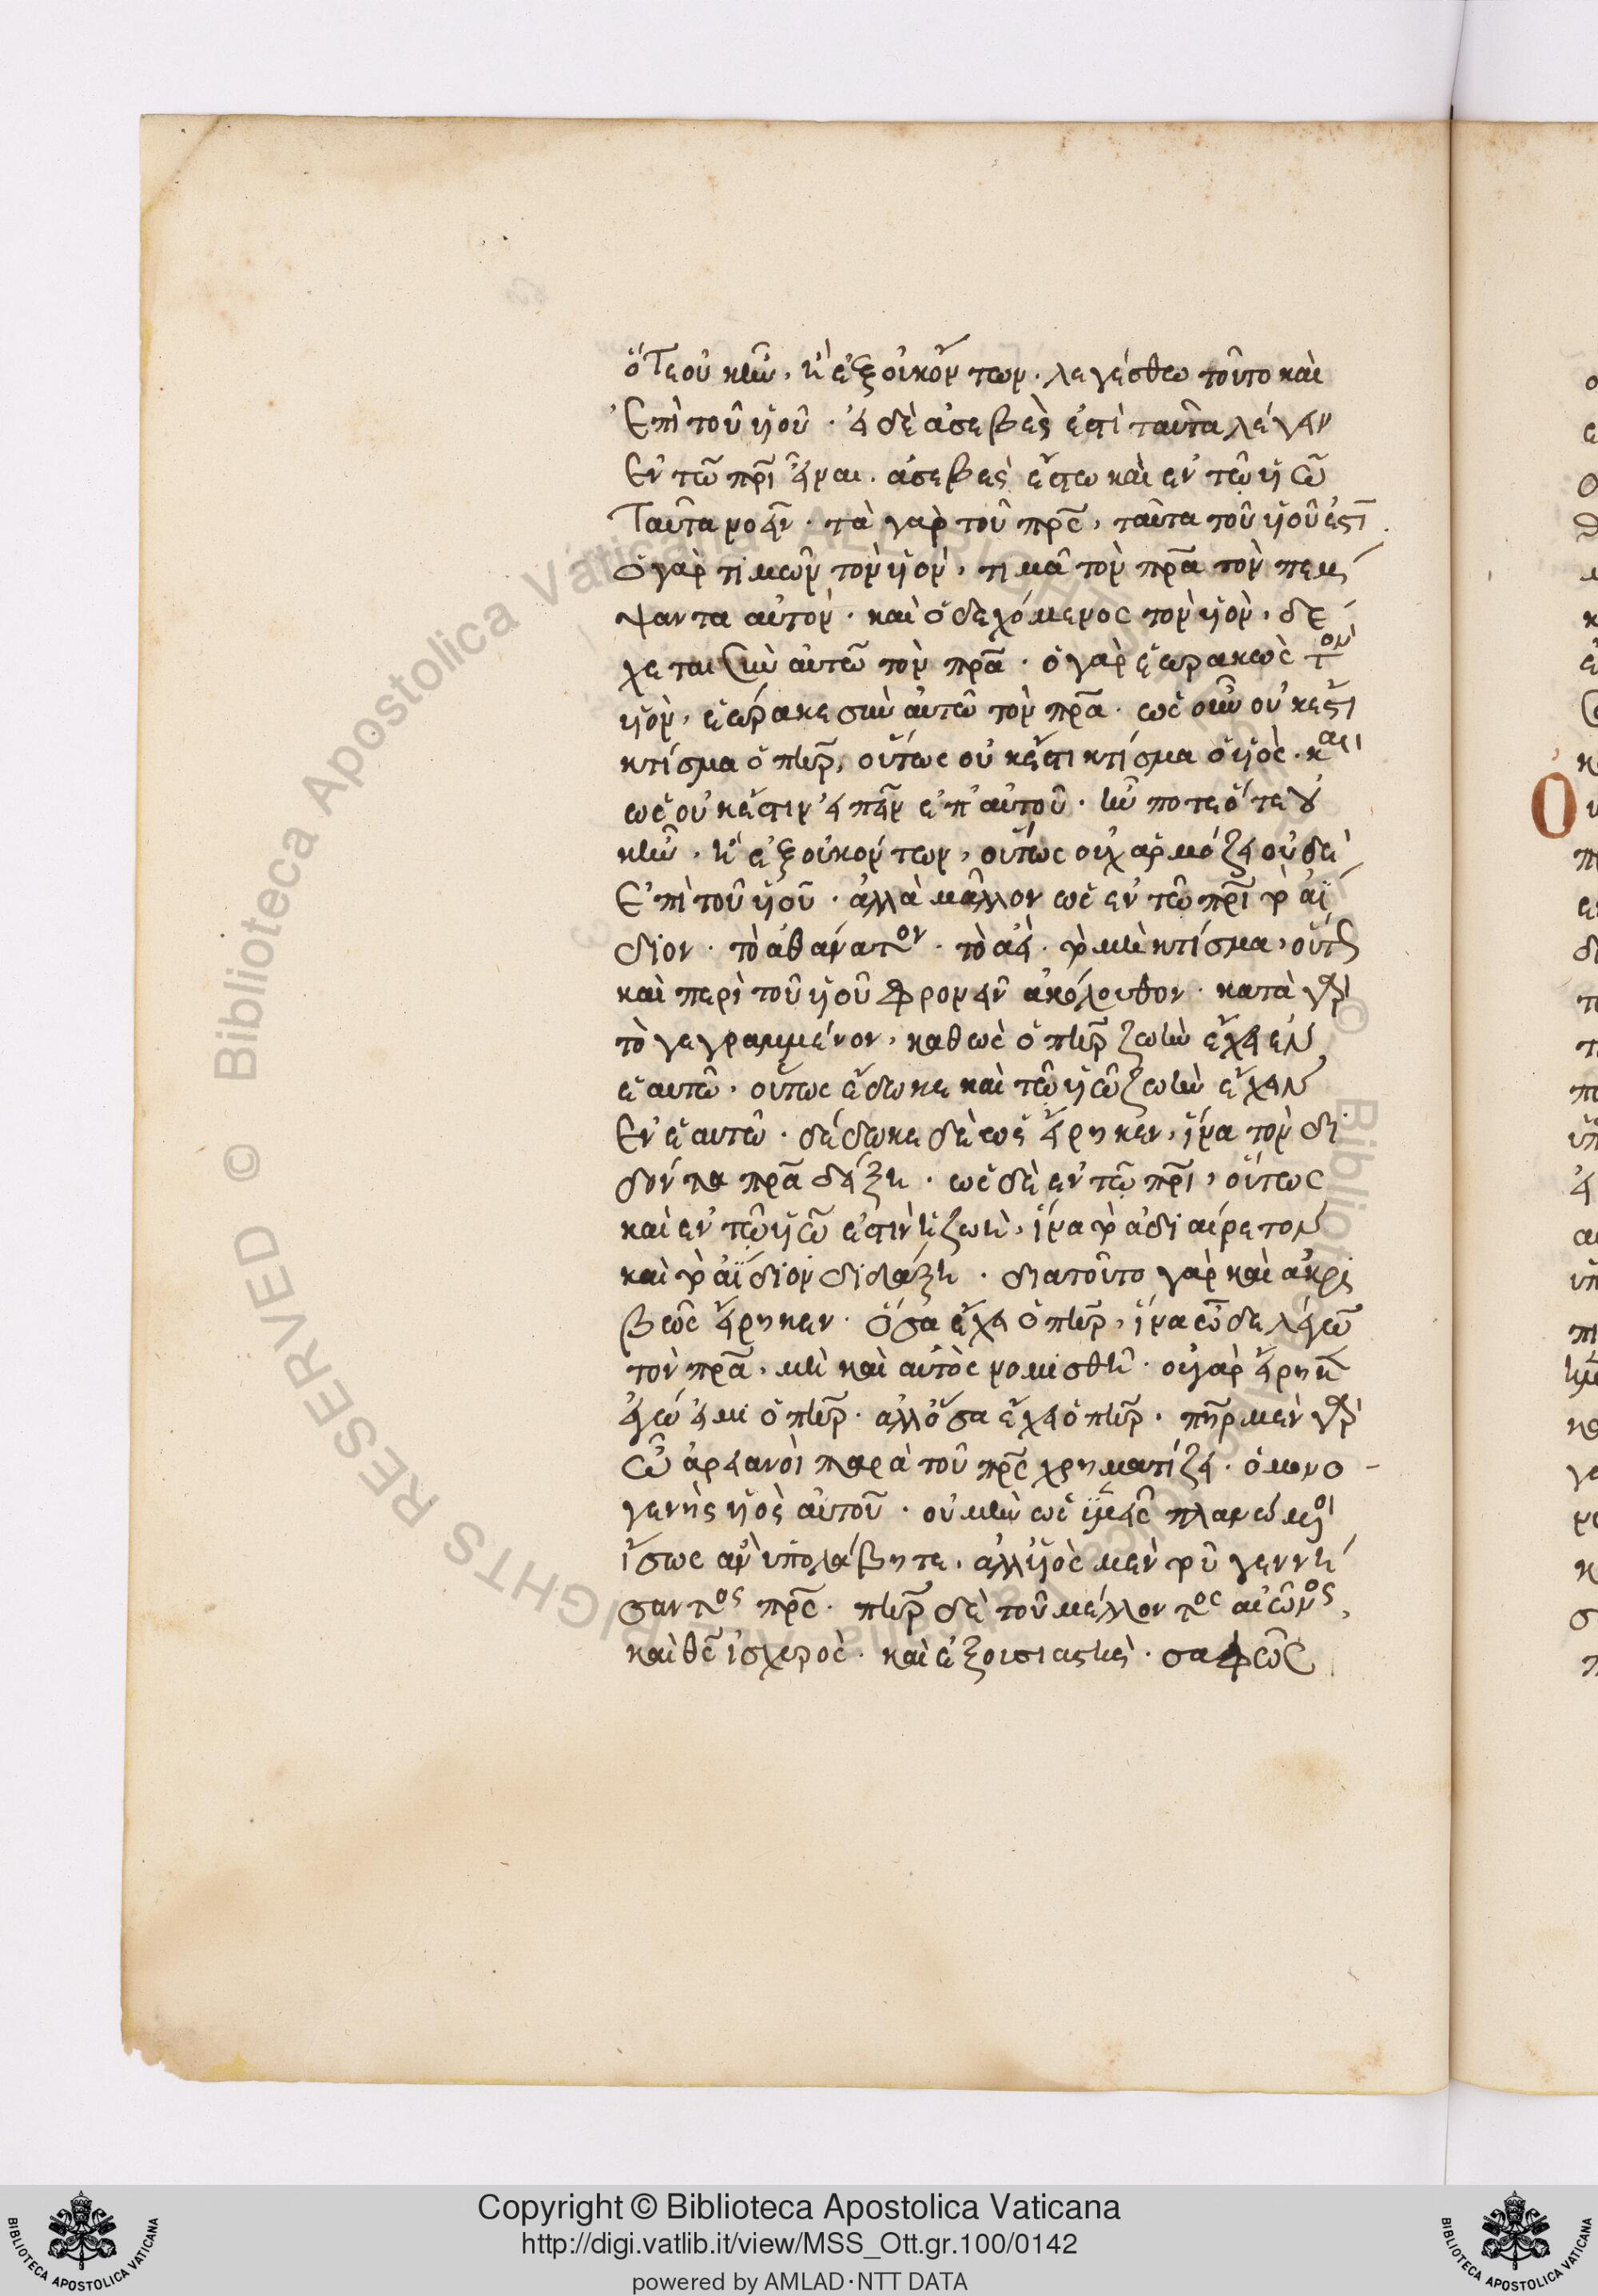 ὅτε οὐκ ἦν, ἢ ἐξ οὐκ ὄντων. λεγέσθω τοῦτο καὶ
ἐπὶ τοῦ υἱοῦ. εἰ δὲ ἀσεβὲς ἐστὶ ταῦτα λέγειν
ἐν τῶ πρὶ εἶναι. ἀσεβὲς ἔστω καὶ ἐν τῶ υἱῶ
ταῦτα νοεῖν. τὰ γὰρ τοῦ πρς, ταῦτα τοῦ υἱοῦ ἐστὶ.
ὁ γὰρ τιμῶν τὸν υἱὸν, τιμᾶ τὸν πρα τὸν πέμ
ψαντα αὐτὸν. καὶ ὁ δεχόμενος τὸν υἱὸν, δέ
χεται σὺν αὐτῶ τὸν πρα. ὁ γὰρ ἑωρακὼς τὸν
υἱὸν, ἑώρακε σὺν αὐτῶ τὸν πρα. ὡς οὖν οὐκ ἔστι
κτίσμα ὁ πηρ, οὕτως οὐκ ἔστι κτίσμα ὁ υἱὸς. καὶ
ὡς οὐκ ἔστιν εἰπεῖν ἐπ' αὐτοῦ. ἦν ποτε ὅτε οὐ
κ ἦν. ἢ ἐξ οὐκ ὄντων, οὕτως οὐχ ἁρμόζει οὐδὲ
ἐπὶ τοῦ υἱοῦ. ἀλλὰ μᾶλλον ὡς ἐν τῶ πρὶ τὸ ἀΐ
διον. τὸ ἀθάνατον. τὸ ἀεὶ. τὸ μὴ κτίσμα, οὕτως
καὶ περὶ τοῦ υἱοῦ φρονεῖν ἀκόλουθον. κατὰ γὰρ
τὸ γεγραμμένον, καθὼς ὁ πηρ ζωὴν ἔχει ἐν
ἑαυτῶ. οὕτως ἔδωκε καὶ τῶ υἱῶ ζωὴν ἔχειν
ἐν ἑαυτῶ. δέδωκε δὲ ὡς εἴρηκεν, ἵνα τὸν δι
δόντα πρα δείξη. ὡς δὲ ἐν τῶ πρὶ, οὕτως
καὶ ἐν τῶ υἱῶ ἐστὶν ἡ ζωὴ, ἵνα τὸ ἀδιαίρετον
καὶ τὸ ἀΐδιον διδάξη. διατοῦτο γὰρ καὶ ἀκρι
βῶς εἴρηκεν. ὅσα ἔχει ὁ πηρ, ἵνα ὧδε λέγων
τὸν πρα, μὴ καὶ αὐτὸς νομισθῆ. οὐ γὰρ εἴρηκεν
ἐγώ εἰμι ὁ πηρ. ἀλλ' ὅσα ἔχει ὁ πηρ. πηρ μὲν γὰρ
ὦ ἀρειανοὶ παρὰ τοῦ πρς χρηματίζει. ὁ μονο-
γενὴς υἱὸς αὐτοῦ. οὐ μὴν ὡς ὑμεῖς πλανώμενοι
ἴσως ἂν ὑπολάβητε, ἀλλ' υἱὸς μὲν τοῦ γεννή
σαντος πρς. πηρ δὲ τοῦ μέλλοντος αἰῶνος,
καὶ θς ἰσχυρὸς. καὶ ἐξουσιαστὴς. σαφῶς
Copyright © Biblioteca Apostolica Vaticana
http://digi.vatlib.it/view/MSS_Ott.gr.100/0142
powered by AMLAD·NTT DATA